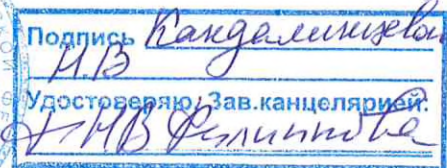 Подпись Кандалинцевой
Н.В
Удостоверяю: Зав.канцелярией:
Н.В Филиппова